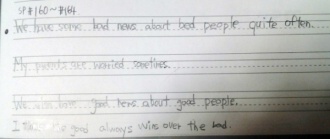 SP #160~#164
We have seen bad news about bad people quite often.
My parents are worried sometimes.
We also have good news about good people.
I the good always wins over the bad.